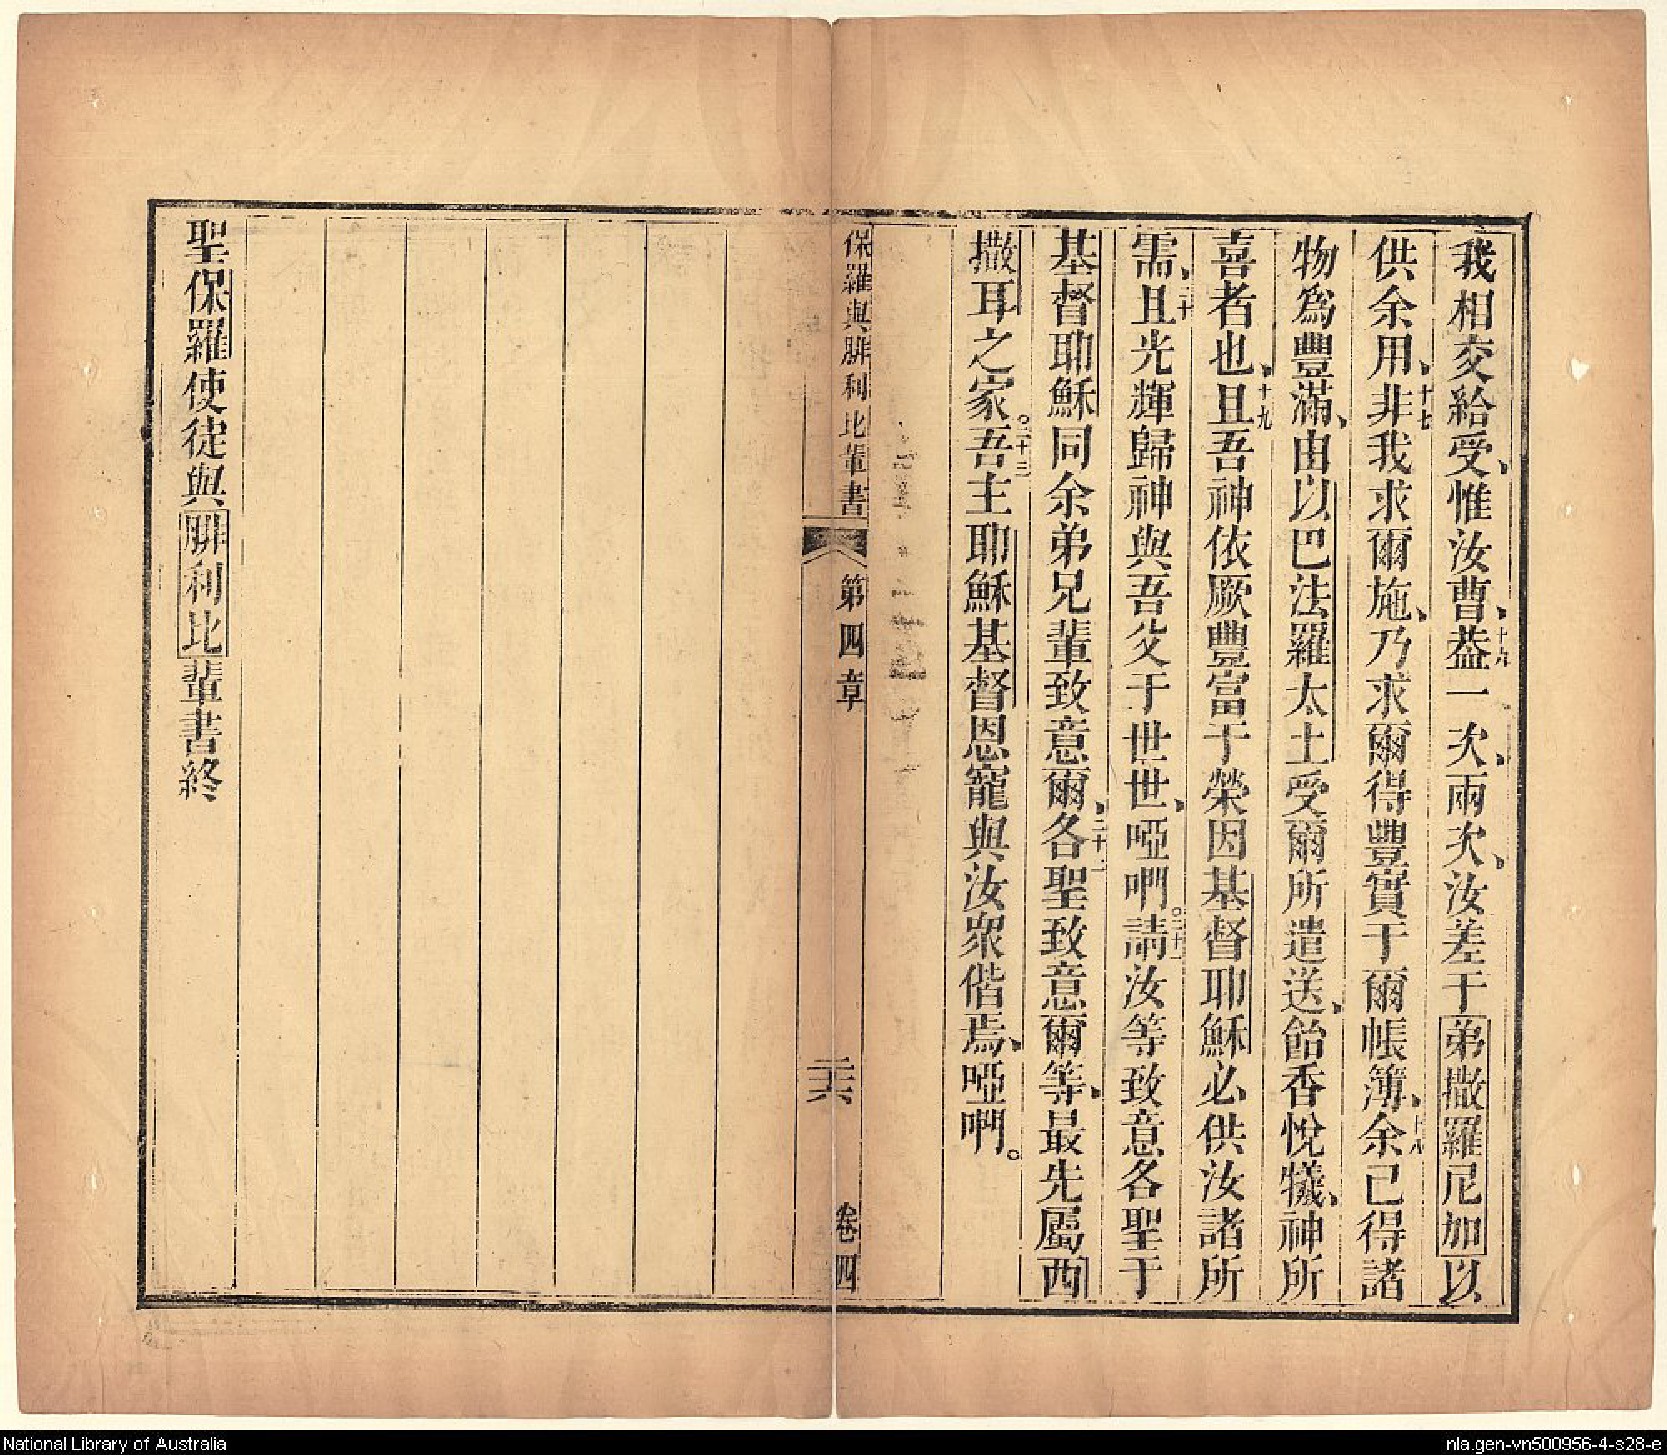 我相交給受、惟汝曹、蓋一次、兩次、汝差于弟撒羅尼加以
供余用、十七非我求爾施、乃求爾得豐實于爾帳簿、十八余已得諸
物爲豐滿、由以巴法羅太土受爾所遣送、飴香悅犧、神所
喜者也、十九且吾神依厥豐富于榮因基督耶穌必供汝諸所
需、二十且光輝歸神與吾父于世世、啞們。二十一請汝等致意各聖于
基督耶穌同余弟兄輩致意爾、二十二各聖致意爾等、最先屬西
撒耳之家。二十三吾主耶穌基督恩寵與汝衆偕焉、啞們。
保羅與腓利比輩書 第四章 二十六 卷四
聖保羅使徒與腓利比輩書終
National Library of Australia
nla.gen-vn500956-4-s28-e